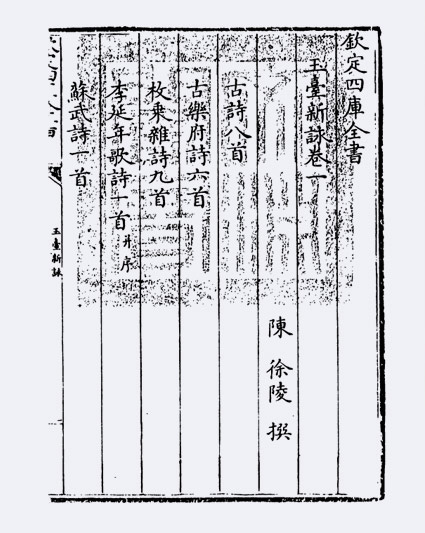 欽定四庫全書
玉臺新詠卷一
陳 徐陵 撰
古詩八首
古樂府詩六首
枚乗雜詩九首
李延年歌詩一首并序
蘇武詩一首
玉臺新詠